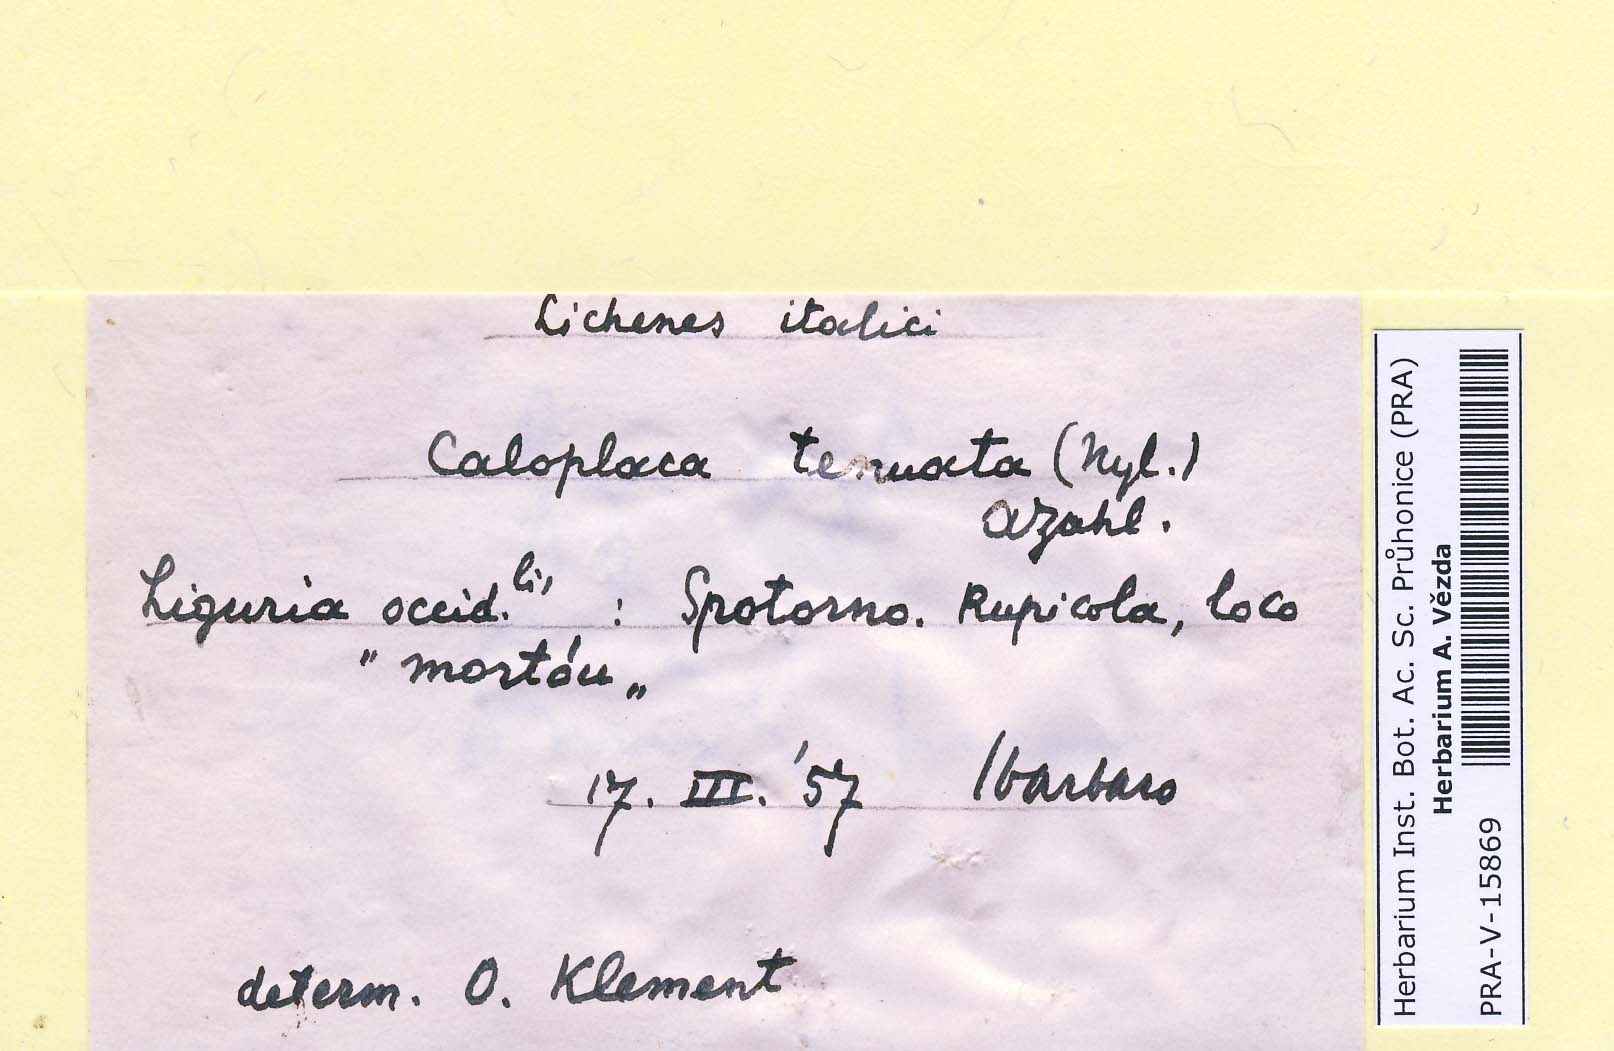 Lichenes italici
Caloplaca tenuata (Nyl.)
Azahl.
Liguria occid.lis : Spotorno. Rupicola, loco
" mortóu „
17. III. '57
determ. O. Klement
Herbarium Inst. Bot. Ac. Sc. Průhonice (PRA)
Herbarium A. Vězda
PRA-V-15869